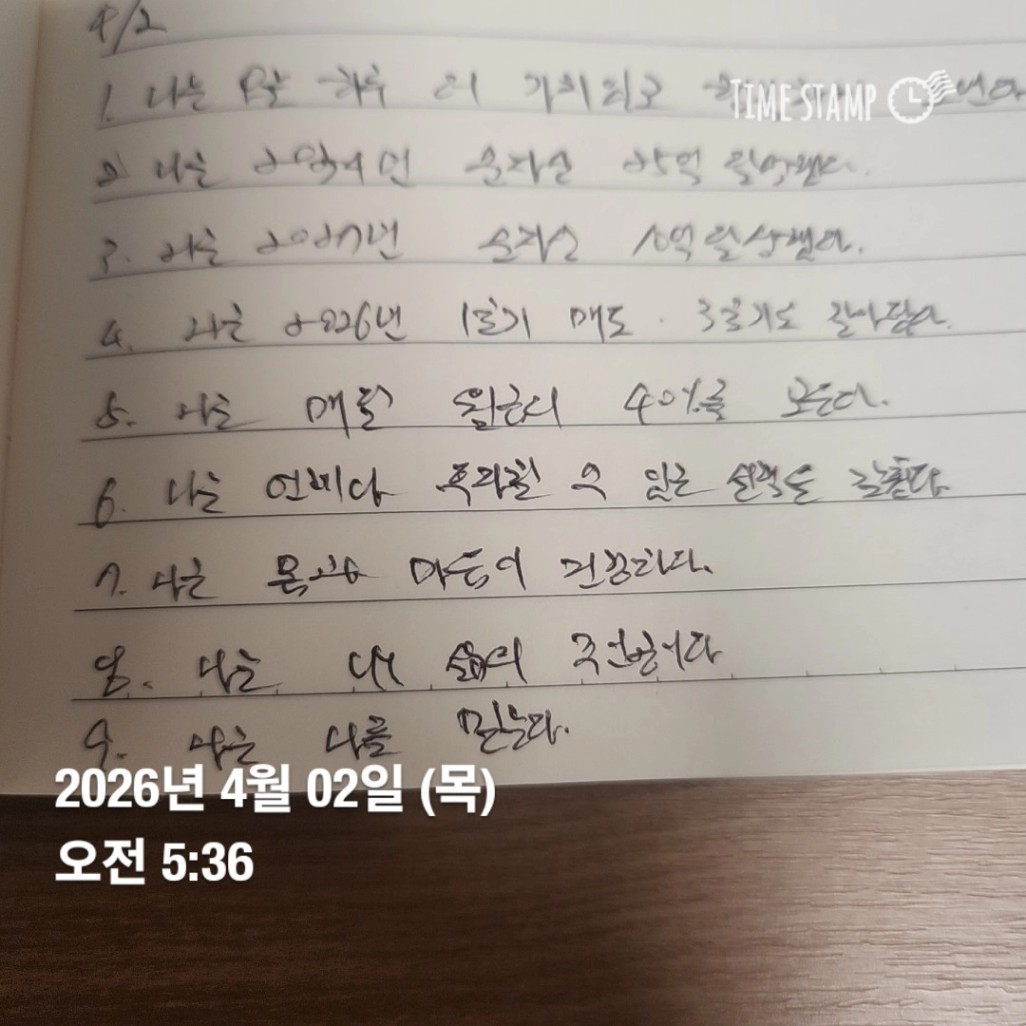 4/2
1. 나는 오늘 하루 더 가치있고
TIME STAMP
2. 나는 순자산 25억 달성했다.
3. 나는 2027년 순자산 10억 달성했다.
4. 나는 2026년 1호기 매도. 3호기로 갈아탄다.
5. 나는 매월 월급의 40%를 모은다.
6. 나는 언제나 후회할 수 있는 선택을
7. 나는 몸과 마음이 건강하다.
8. 나는 내 삶의 주인이다
9. 나는 나를 믿는다.
2026년 4월 02일 (목)
오전 5:36